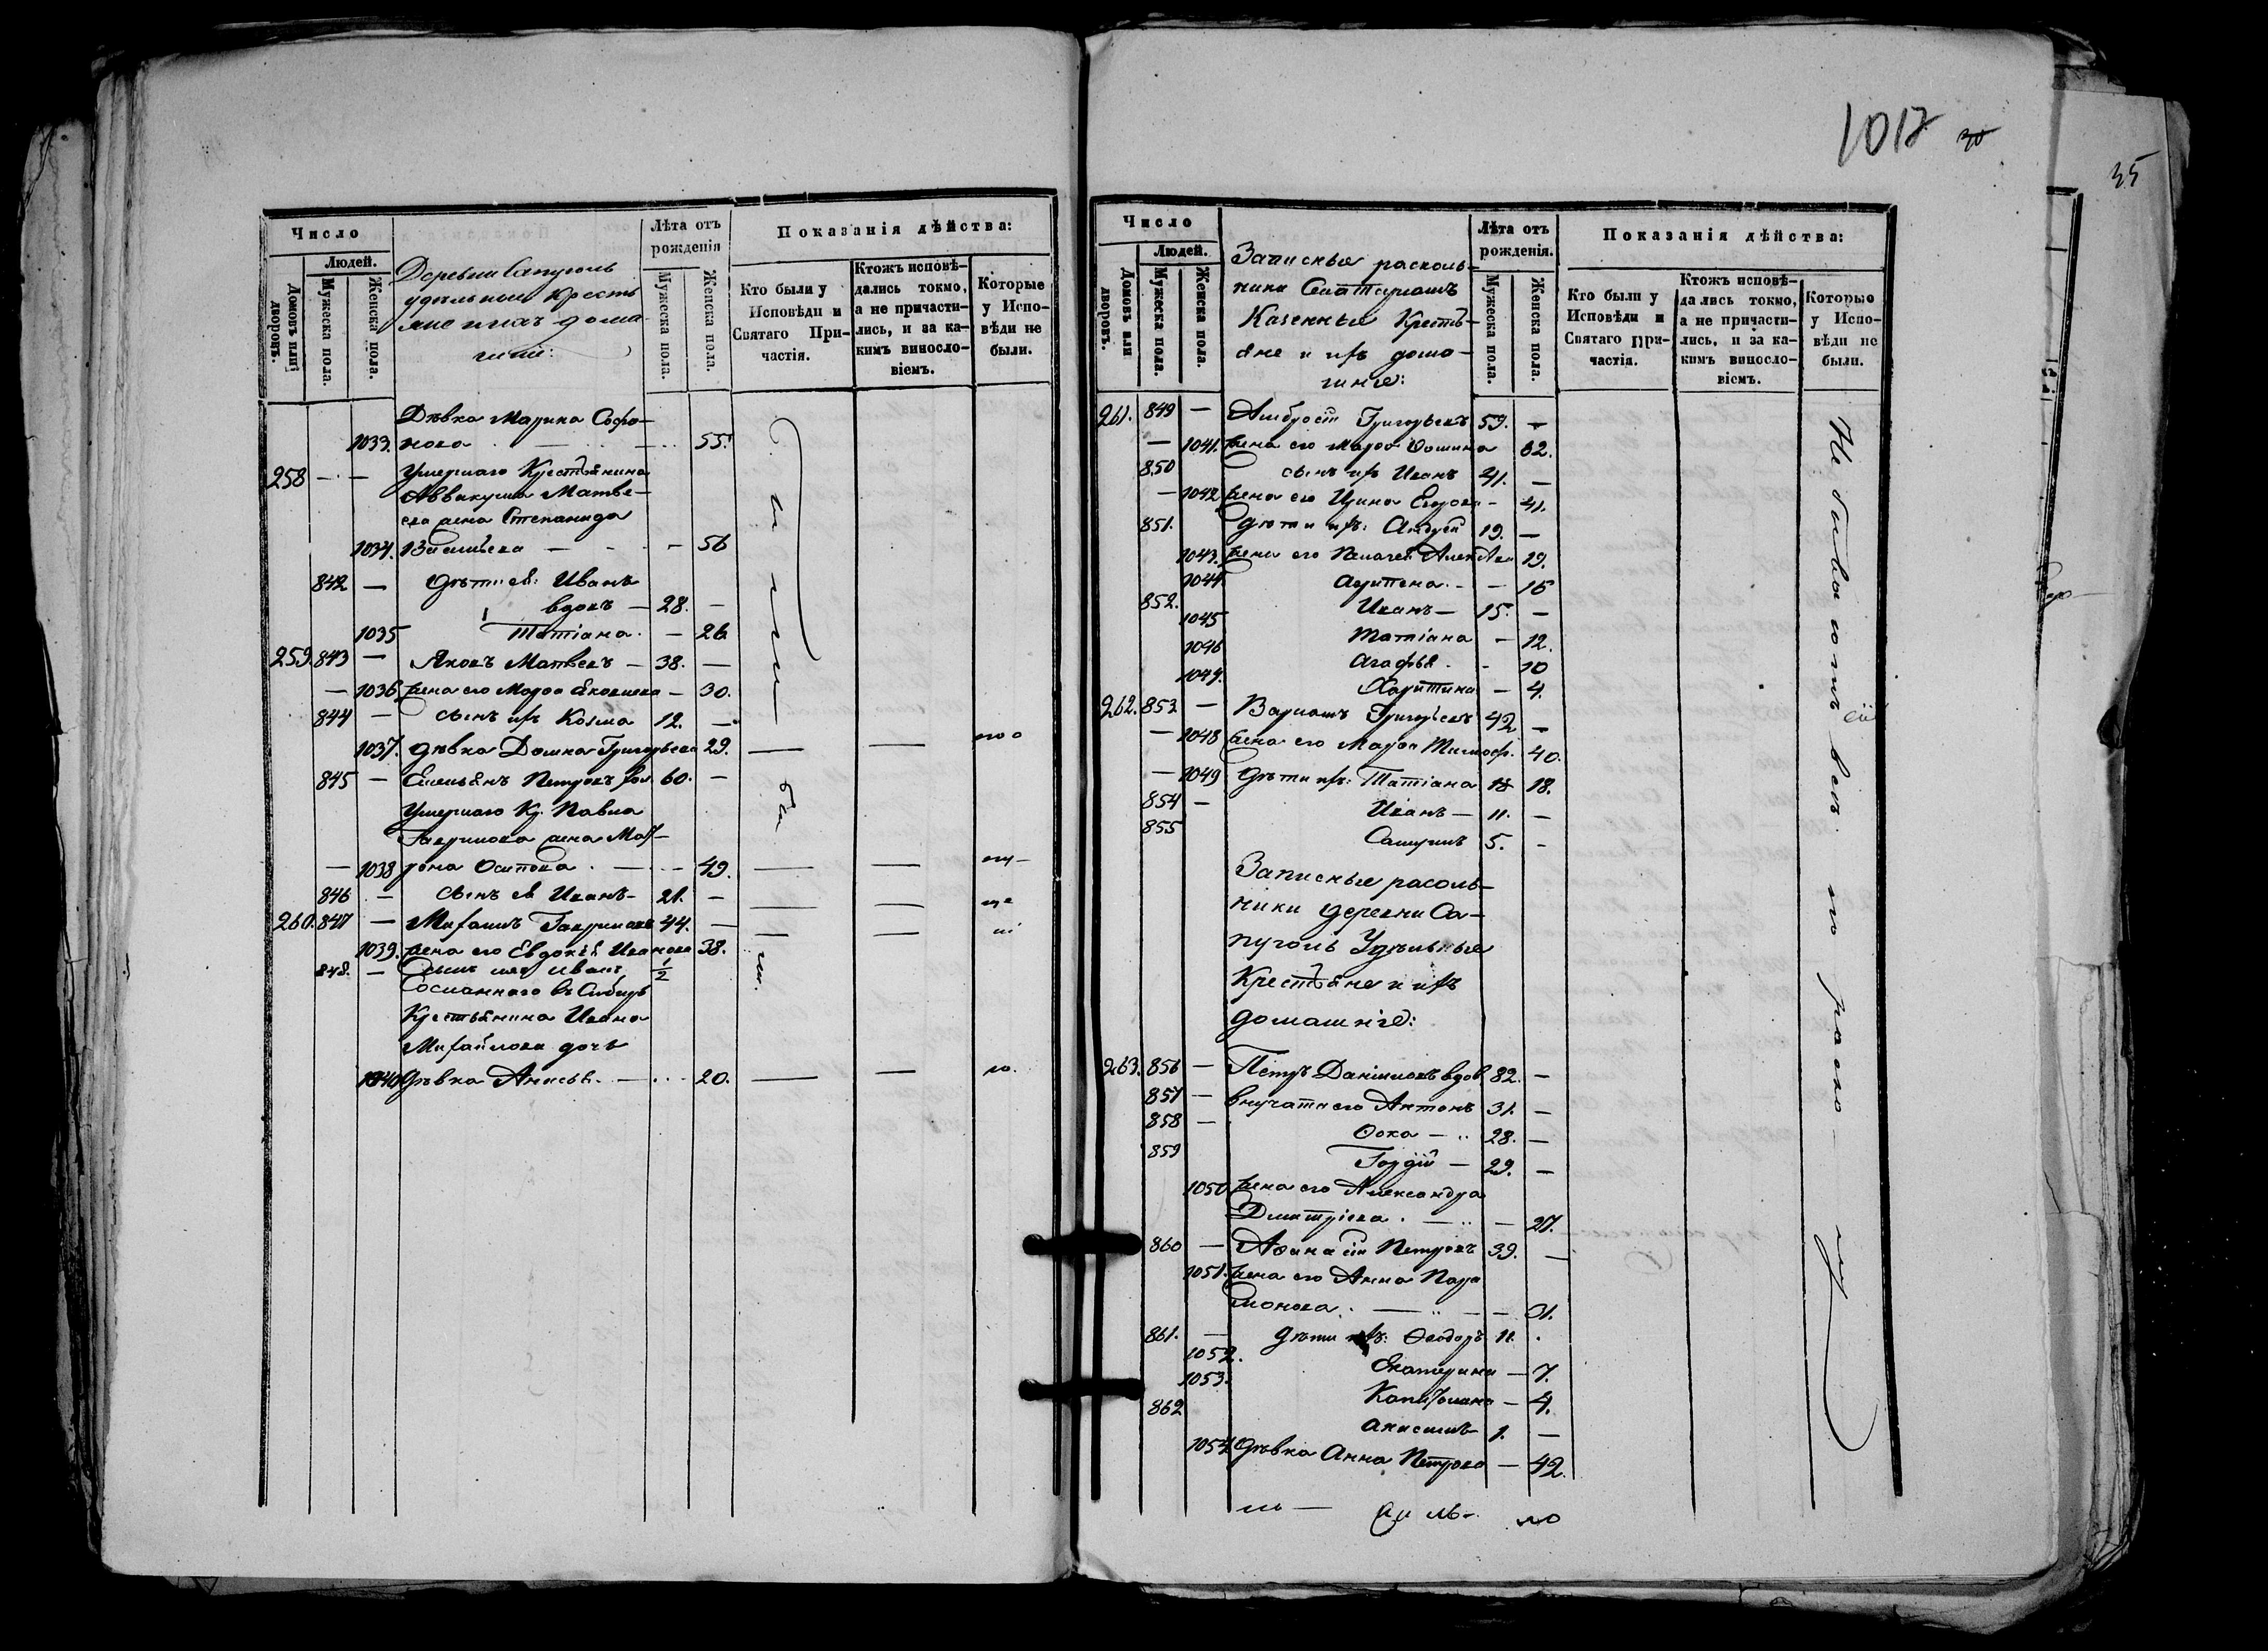 1017
35
Число
Людей.
Домовъ или дворовъ.
Мужеска пола.
Женска пола.
Деревни Сапуголь
удѣльные кресть
яне и ихъ дома-
шніе:
Лѣта отъ
рожденія
Мужеска пола.
Женска пола.
Показанія дѣйства:
Кто были у
Исповѣди и
Святаго При-
частія.
Ктожъ исповѣ-
дались токмо,
а не причасти-
лись, и за ка-
кимъ винosло-
віемъ.
Которые
у Испо-
вѣди не
были.
Дѣвка Марина Софро-
1033. нова 55.
258 — — Умершаго Крестьянина
Аввакума Матве-
ева жена Степанида
1034. Васильева — 56
842 — дѣти ея: Иванъ
вдовъ — 28. —
1035 Татіана. — 26
259. 843 — Яковъ Матвеевъ — 38. —
— 1036 жена его Марѳа Яковлева — 30.
844 — сынъ ихъ Козма 12. —
1037. дѣвка Домна Григорьева 29. — —
845 — Емельянъ Петровъ хол. 60. —
Умершаго Кр. Павла
Гаврилова жена Мат-
— 1038 рона Осипова — 49. — —
846 — сынъ ея Иванъ — 21. — — —
260. 847 — Михаилъ Гавриловъ 44. — — —
1039. жена его Евдокія Иванова 38.
848. — Сынъ ихъ Иванъ 1/2
Сосланнаго въ Сибирь
Крестьянина Ивана
Михайлова дочь
1040 дѣвка Анисья. — 20. — —
были
Число
Людей.
Домовъ или дворовъ.
Мужеска пола.
Женска пола.
Записные расколь-
ники
Казенные Кресть-
яне и ихъ дома-
шніе:
Лѣта отъ
рожденія.
Мужеска пола.
Женска пола.
Показанія дѣйства:
Кто были у
Исповѣди и
Святаго При-
частія.
Ктожъ исповѣ-
дались токмо,
а не причасти-
лись, и за ка-
кимъ винosло-
віемъ.
Которые
у Испо-
вѣди не
были.
261. 849 — Амбросій Григорьевъ 59. —
— 1041. жена его Марѳа Ѳомина 62.
850 сынъ ихъ Иванъ 41. —
— 1042 жена его Ирина Егорова — 41.
851. дѣти ихъ: 19. —
1043. жена его Пелагея 19.
1044 Агрипена — — 16
852. Иванъ — 15. —
1045 Татіана — 12.
1046 Агафья — 10
1047. Харитина — 4.
262. 853 — Варламъ Григорьевъ 42 —
— 1048 жена его Марѳа Тимоф. 40.
— 1049 дѣти ихъ: Татіана 18 18.
854 — Иванъ — 11. —
855 Самуилъ 5. —
Записные расоль-
ники деревни Са-
пуголь Удѣльные
Крестьяне и ихъ
домашніе:
263. 856 — Петръ Даниловъ вдов 82. —
857 — внучата его Антонъ 31. —
858 — Ѳока — 28. —
859 Гордій — 29. —
1050 жена его Александра
Дмитріева. — — 27.
860 — Аѳанасій Петровъ 39. —
1051. жена его Анна Пара
монова. — — 31.
861. — дѣти ихъ: Ѳеодоръ 11.
1052. Екатерина — 7.
1053. Капитолина — 4.
862 Анисимъ 1. —
1054 дѣвка Анна Петрова — 42.
Не бываютъ все по раско-
лу